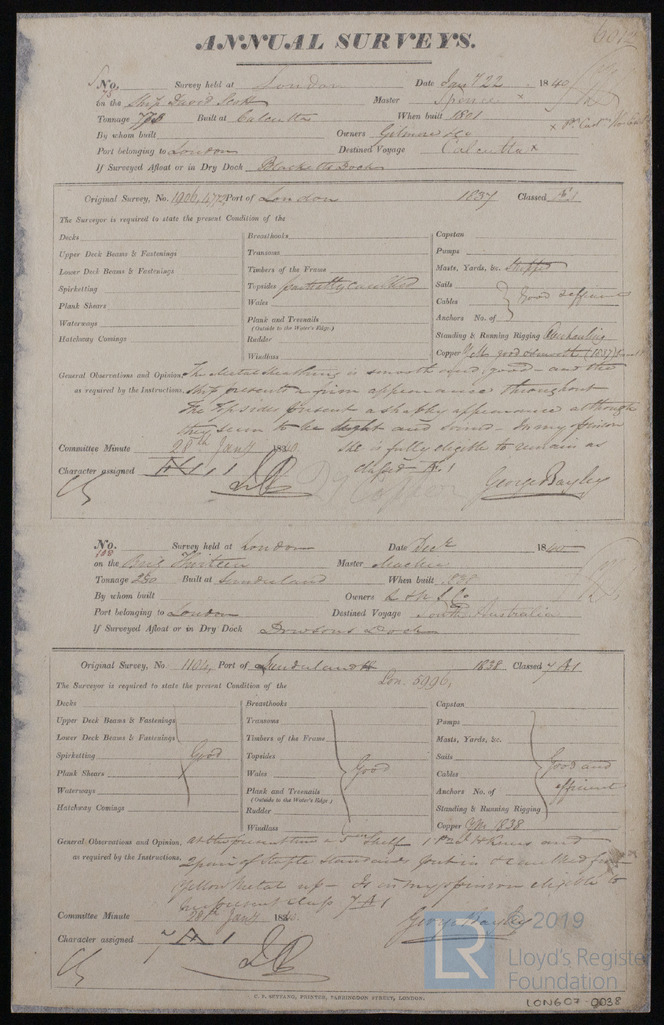 ANNUAL SURVEYS.
No. 75 Survey held at London Date Jany 22 1840
on the Ship David Scott Master Spence x
Tonnage 773 Built at Calcutta When built 1801
By whom built Owners Gilmore & Co
Port belonging to London Destined Voyage Calcutta x
If Surveyed Afloat or in Dry Dock Blacketts Dock
Original Survey, No. 1906, Port of London 1837 Classed Æ 1
The Surveyor is required to state the present Condition of the
Decks Breasthooks Capstan
Upper Deck Beams & Fastenings Transoms Pumps
Lower Deck Beams & Fastenings Timbers of the Frame Masts, Yards, &c.
Spirketting Topsides partially caulked Sails
Plank Shears Wales Cables good & efficient
Waterways Plank and Treenails Anchors No. of
(Outside to the Water's Edge.)
Hatchway Comings Rudder Standing & Running Rigging Overhauling
Windlass Copper good & smooth (1837)
General Observations and Opinion, The Metal Sheathing is smooth and good - and the
as required by the Instructions, Ship presents a firm appearance throughout
The Topsides present a shabby appearance although
they seem to be tight and sound - In my opinion
Committee Minute 28th Jany 1840. She is fully eligible to remain as
Character assigned Æ 1 classed Æ 1
George Bayley
No. 108 Survey held at London Date Decr 1840
on the Brig Thirteen Master Machin
Tonnage 250 Built at Sunderland When built 1838
By whom built Owners
Port belonging to London Destined Voyage South Australia
If Surveyed Afloat or in Dry Dock Dowsons Dock
Original Survey, No. 1104, Port of Sunderland 1838 Classed 7 A 1
Lon. 5996,
The Surveyor is required to state the present Condition of the
Decks Breasthooks Capstan
Upper Deck Beams & Fastenings Transoms Pumps
Lower Deck Beams & Fastenings Timbers of the Frame Masts, Yards, &c.
Spirketting Good Topsides Sails Good and
Plank Shears Wales Good Cables efficient
Waterways Plank and Treenails Anchors No. of
(Outside to the Water's Edge.)
Hatchway Comings Rudder Standing & Running Rigging
Windlass Copper YM 1838
General Observations and Opinion, at this present time a Shelf Knees and
as required by the Instructions, 2 pair of Staple Standards put in & caulked from
Yellow Metal up - Is in my opinion eligible to
her present class 7 A 1
Committee Minute 28th Jany 1840.
Character assigned 7 A 1
George Bayley
C. F. SEYFANG, PRINTER, FARRINGDON STREET, LONDON.
LR © 2019
Lloyd's Register
Foundation
LON607-0038